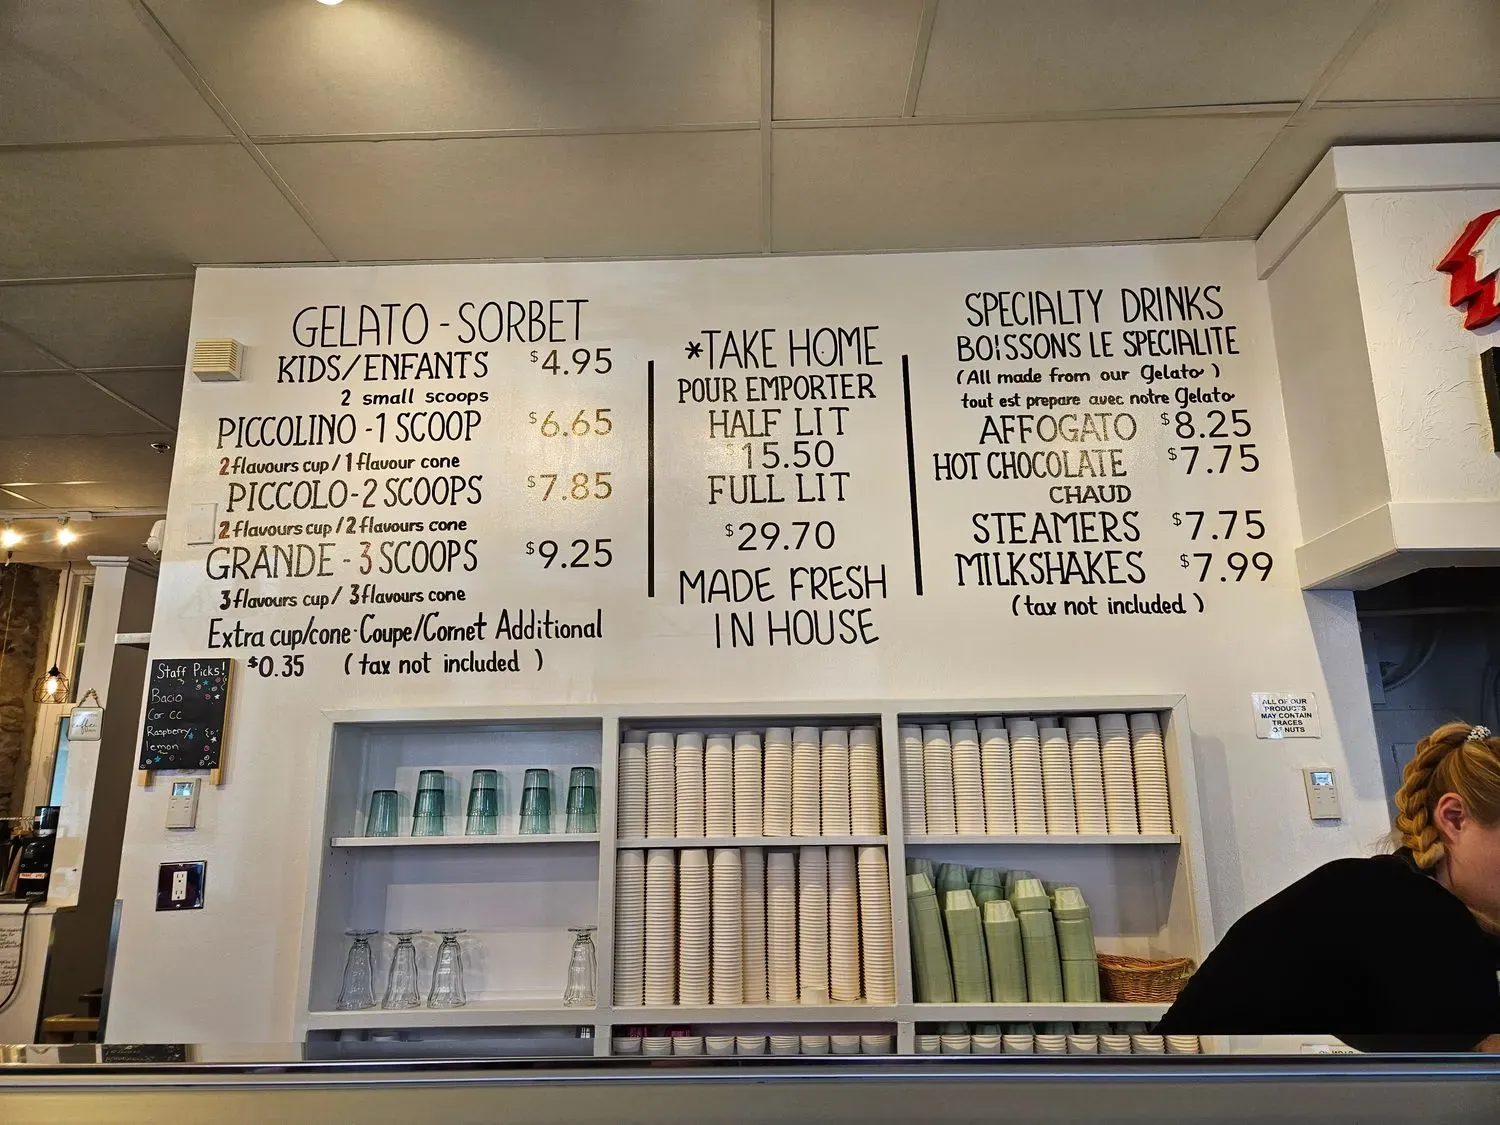 GELATO - SORBET
KIDS/ENFANTS $4.95
2 small scoops
PICCOLINO - 1 SCOOP $6.65
2 flavours cup / 1 flavour cone
PICCOLO - 2 SCOOPS $7.85
2 flavours cup / 2 flavours cone
GRANDE - 3 SCOOPS $9.25
3 flavours cup / 3 flavours cone
Extra cup/cone · Coupe/Cornet Additional
$0.35 (tax not included)
*TAKE HOME
POUR EMPORTER
HALF LIT
$15.50
FULL LIT
$29.70
MADE FRESH
IN HOUSE
SPECIALTY DRINKS
BOISSONS LE SPECIALITE
(All made from our Gelato)
tout est prepare avec notre Gelato
AFFOGATO $8.25
HOT CHOCOLATE $7.75
CHAUD
STEAMERS $7.75
MILKSHAKES $7.99
(tax not included)
Staff Picks!
Bacio
Car. CC
Raspberry
lemon
ALL OF OUR
PRODUCTS
MAY CONTAIN
TRACES
OF NUTS